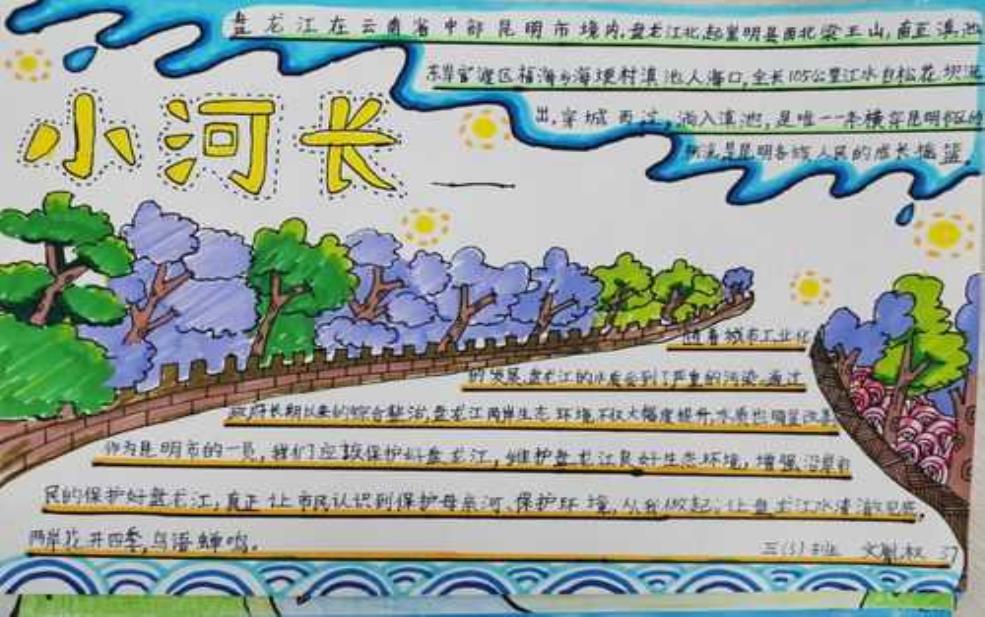 盘龙江在云南省中部昆明市境内,盘龙江北起嵩明县西北梁王山,南至滇池
东岸官渡区福海乡海埂村滇池入海口,全长105公里江水自松花坝流
出,穿城而过,淌入滇池,是唯一一条横穿昆明市区的
河流是昆明各族人民的成长摇篮。
小河长
随着城市工业化
的发展,盘龙江的水质受到了严重的污染。通过
政府长期以来的综合整治,盘龙江两岸生态环境不仅大幅度提升,水质也明显改善
作为昆明市的一员,我们应该保护好盘龙江,维护盘龙江良好生态环境,增强沿岸
民的保护好盘龙江,真正让市民认识到保护母亲河、保护环境,从我做起;让盘龙江水清澈见底,
两岸花开四季,鸟语蝉鸣。
三(5)班 文 权 37